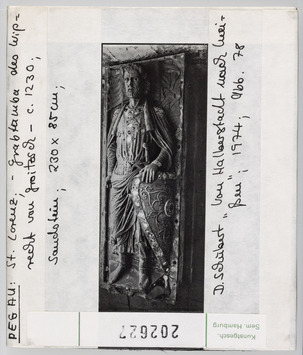 PEGAU: St. Lorenz; - Grabtumba des Wip=
recht von Groitzsch - c. 1230;
Sandstein; 230 x 85 cm;
D. Schubert "Von Halberstadt nach Mei-
ßen"; 1974; Abb. 78
202627
Kunstgesch.
Sem. Hamburg